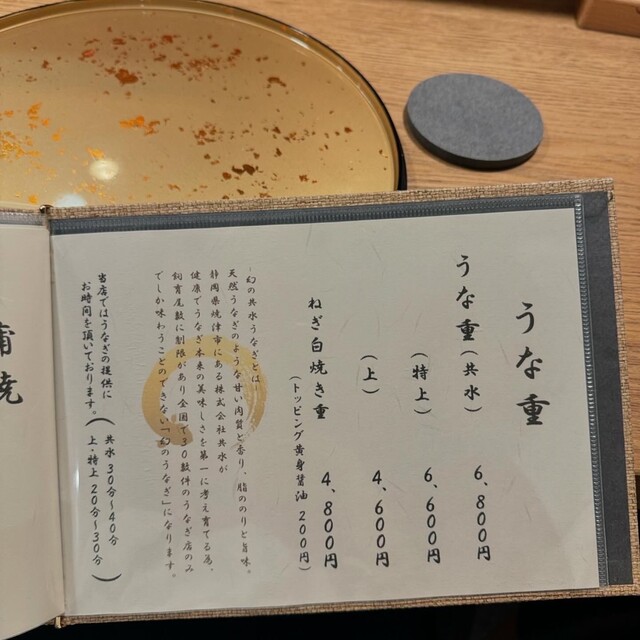 うな重
うな重(共水) 6,800円
(特上) 6,600円
(上) 4,600円
ねぎ白焼き重 4,800円
(トッピング黄身醤油 200円)
幻の共水うなぎとは
天然うなぎのような甘い肉質と香り、脂ののりと旨味。
静岡県焼津市にある株式会社共水が
健康でうなぎ本来の美味しさを第一に考え育てる為、
飼育尾数に制限があり全国で30数件のうなぎ店のみ
でしか味わうことのできない「幻のうなぎ」になります。
当店ではうなぎの提供に
お時間を頂いております。
(共水 30分〜40分
上・特上 20分〜30分)
蒲焼